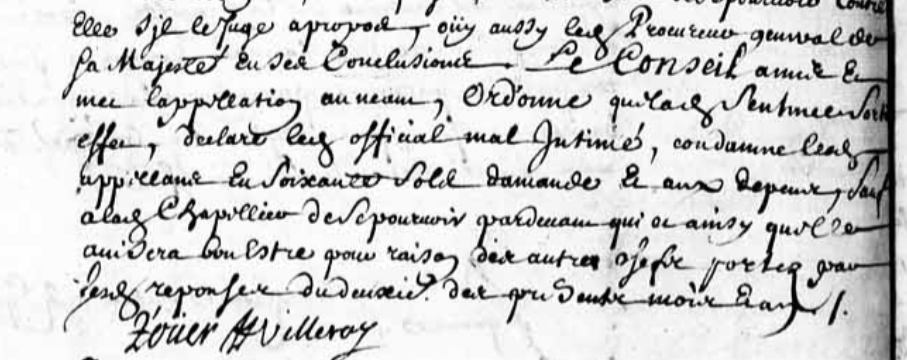 Elle s'jl le Juge apropos, oüy aussy led Procureur general de
Sa Majesté En ses Conclusions. Le Conseil a mis Et
met l'appellation au neant, Ordonne que lad Sentence Sort
effet, declare led official mal Jntimé, condamne led
appellant En Soixante Sols damande Et aux depens, Sauf
a lad Chapellier de Se pourvoir pardevant qui et ainsy quelle
avisera bon Estre pour raison des autres portez par
Sesd reponses du deuxie. des presents mois Et an /.
Roüer Villeray